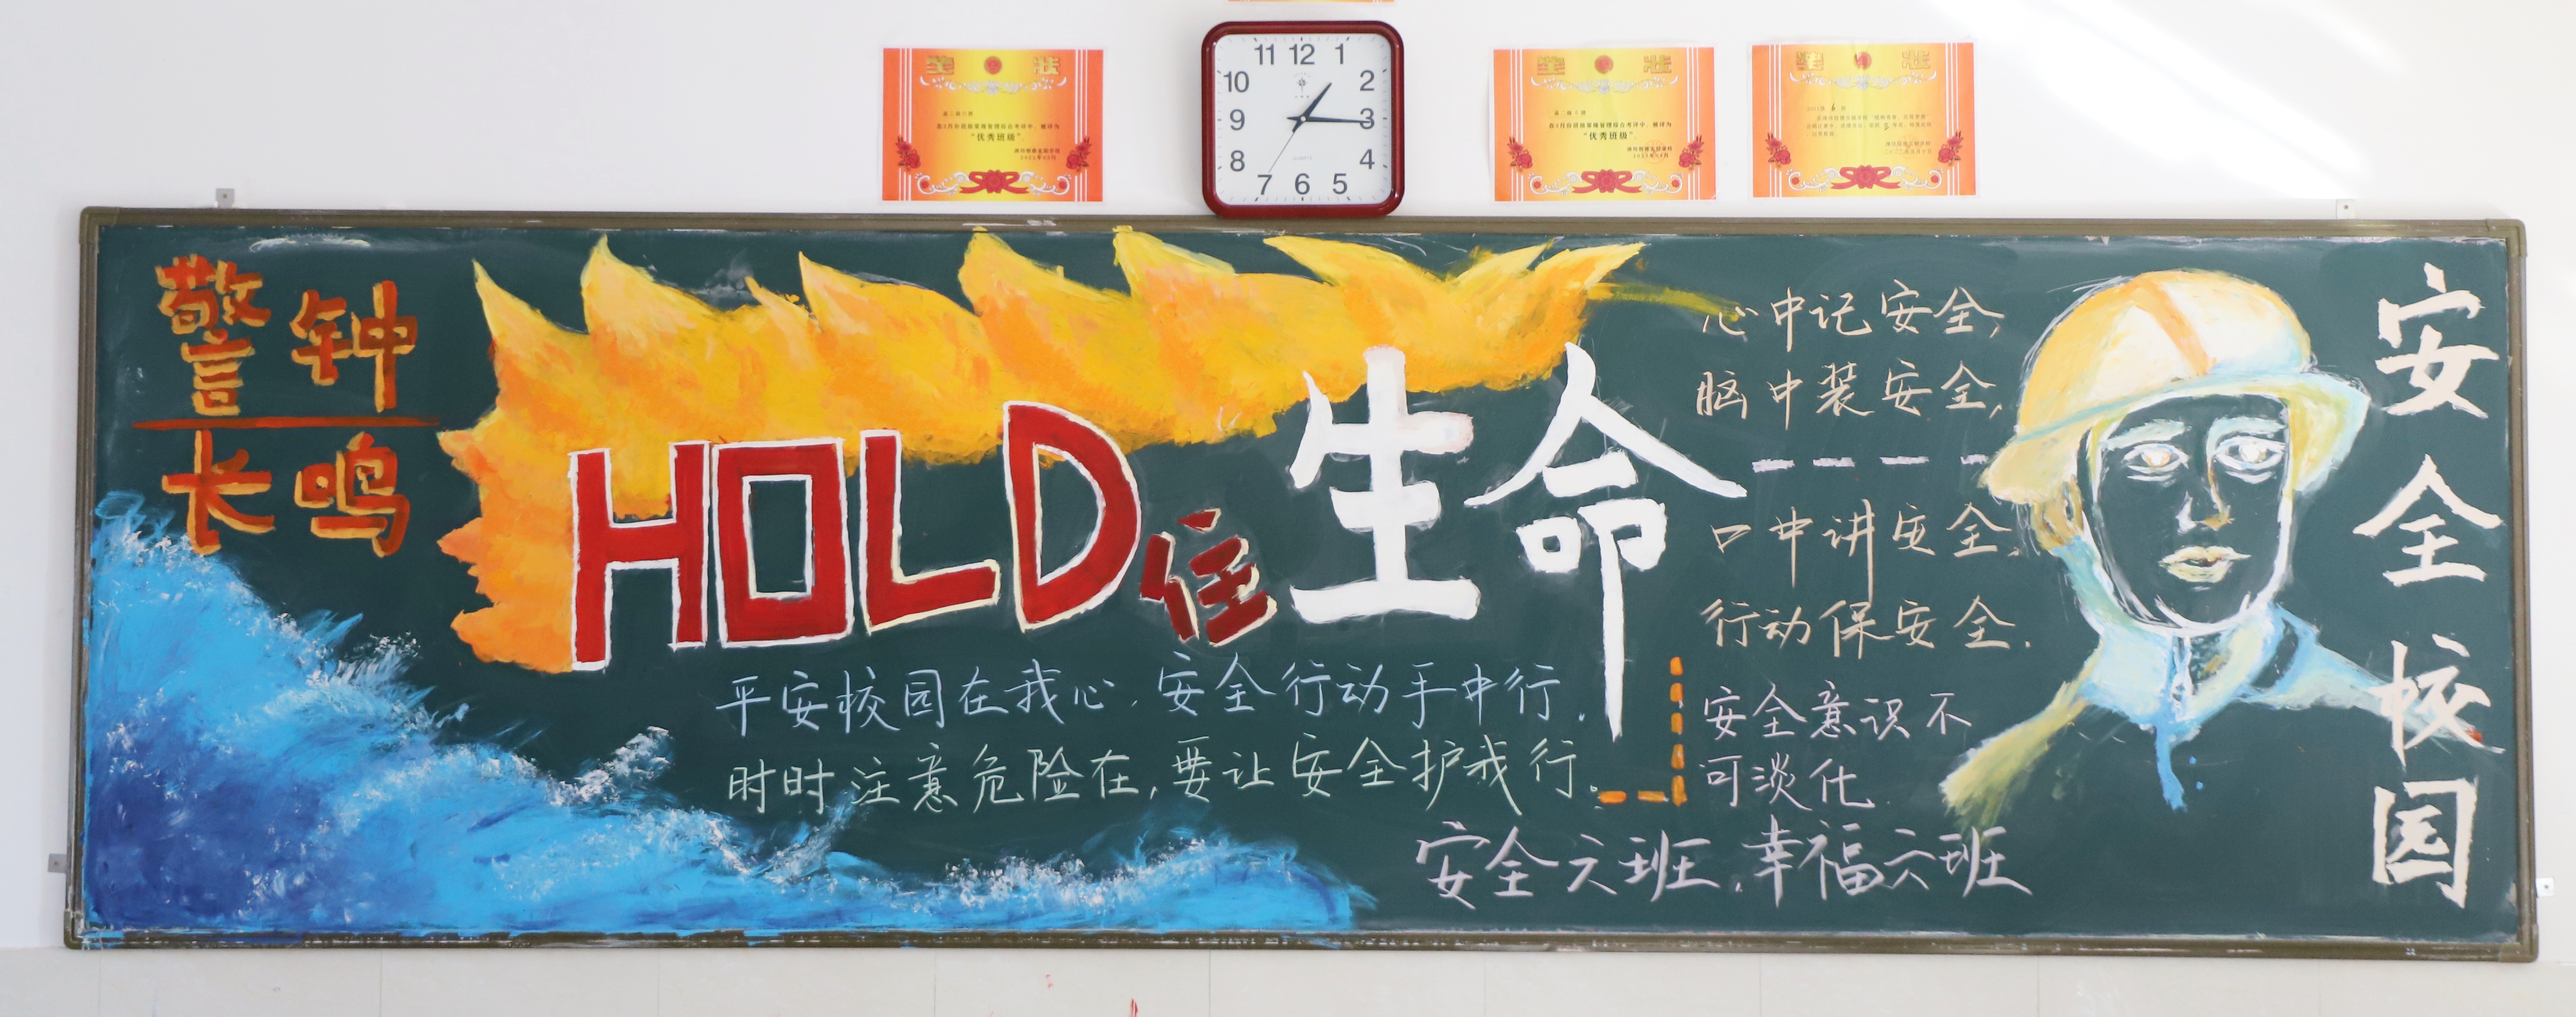 奖 状
高二级六班
“优秀班级”
11 12 1
10 2
9 3
8 4
7 6 5
奖 状
高二级6班
“优秀班级”
奖 状
警钟
长鸣
HOLD住生命
平安校园在我心,安全行动手中行.
时时注意危险在,要让安全护我行.
心中记安全,
脑中装安全,
口中讲安全,
行动保安全.
安全意识不
可淡化
安全六班,幸福六班
安全校园